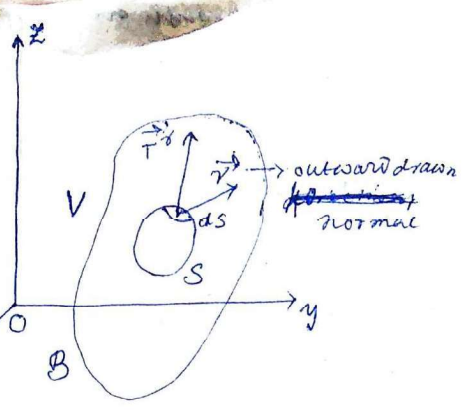 z
T⃗ ν
ν⃗ → outward drawn
normal
V
ds
S
O
y
B